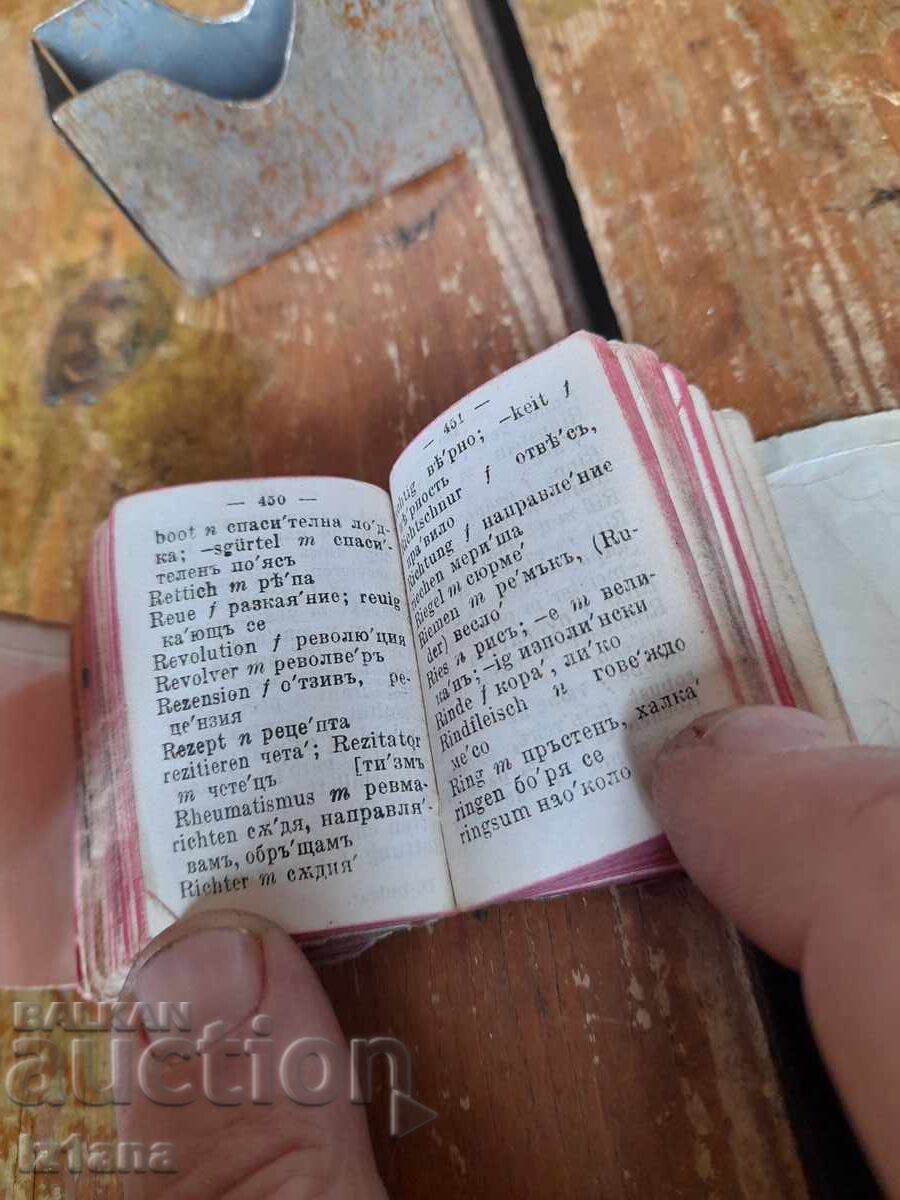 — 450 —
boot n спаси'телна ло'д-
ка; –sgürtel m спаси'-
теленъ по'ясъ
Rettich m рѣ'па
Reue f разкая'ние; reuig
ка'ющъ се
Revolution f револю'ция
Revolver m револве'ръ
Rezension f о'тзивъ, ре-
це'нзия
Rezept n реце'пта
rezitieren чета'; Rezitator
m чсте'цъ [ти'змъ
Rheumatismus m ревма-
richten сѫ'дя, направля'-
вамъ, обръ'щамъ
Richter m сѫдия'
— 451 —
вѣ'рно; –keit f
вѣ'рность
отвѣ'съ,
пра'вило
Richtung f направле'ние
riechen мери'ша
Riegel m сюрме'
Riemen m ре'мъкъ, (Ru-
der) весло'
Ries n рисъ; –e m вели-
ка'нъ; –ig изполи'нски
Rinde f кора', ли'ко
Rindfleisch n гове'ждо
ме'со
Ring m пръ'стенъ, халка'
ringen бо'ря се
ringsum нзо'коло
BALKAN
auction
Iz1ana